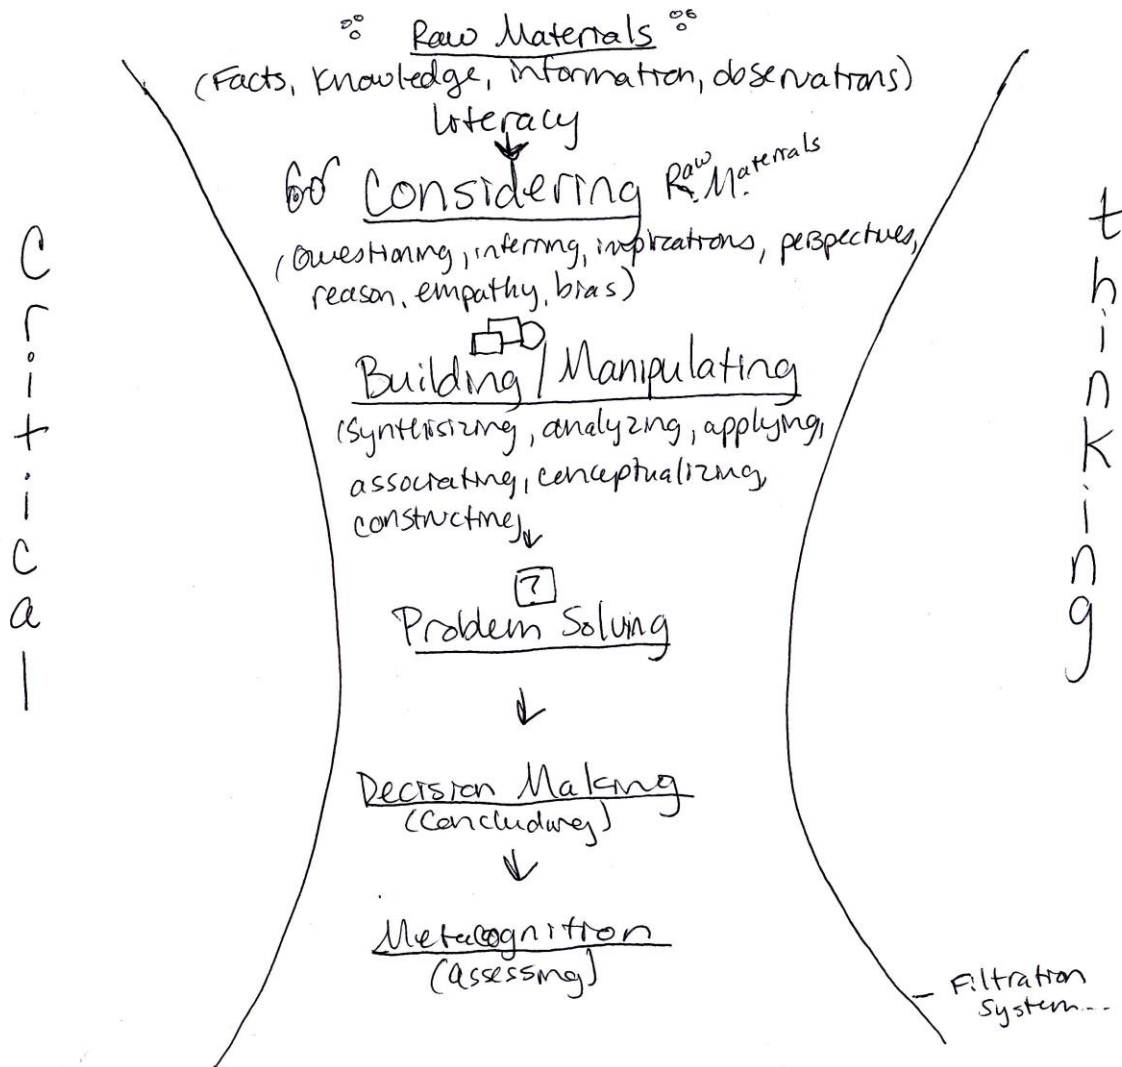 Raw Materials
(Facts, Knowledge, information, observations)
literacy
Considering Raw Materials
(Questioning, inferring, implications, perspectives,
reason, empathy, bias)
Building / Manipulating
(Synthisizing, analyzing, applying,
associating, conceptualizing,
constructing)
?
Problem Solving
Decision Making
(Concluding)
Metacognition
(assessing)
Critical
thinking
- Filtration
System...